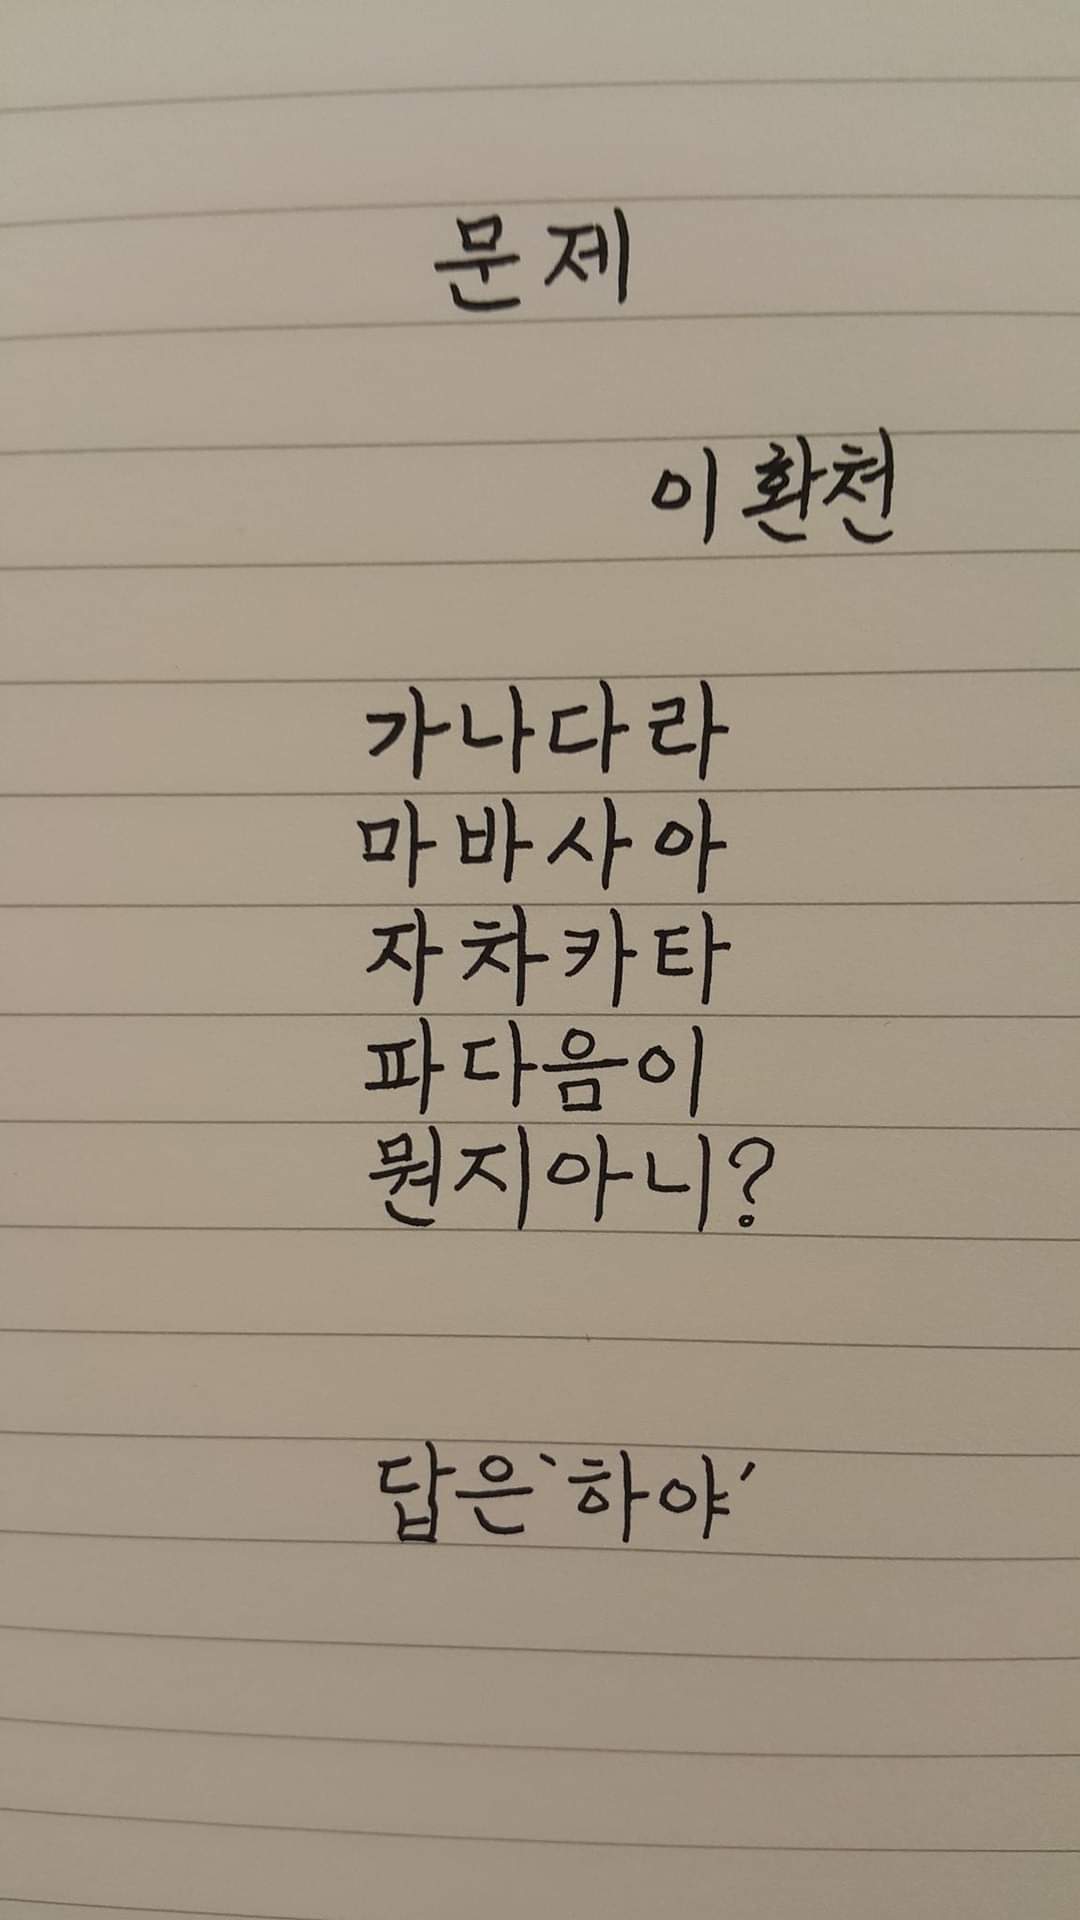 문제
이환천
가나다라
마바사아
자차카타
파다음이
뭔지아니?
답은`하야'